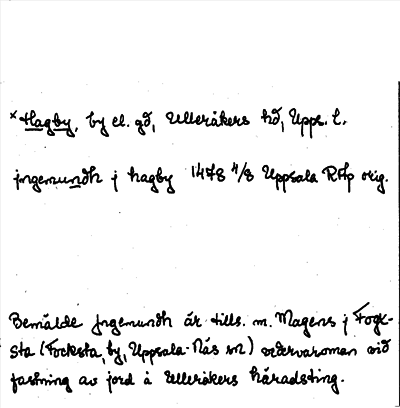 x Hagby, by el. gd, Ulleråkers hd, Upps. l.
jngemundh j hagby 1478 4/8 Uppsala RAp orig.
Bemälde Jngemundh är tills. m. Magens j Fogx-
sta (Focksta, by, Uppsala-Näs sn) vedervaroman vid
fastning av jord å Ulleråkers häradsting.